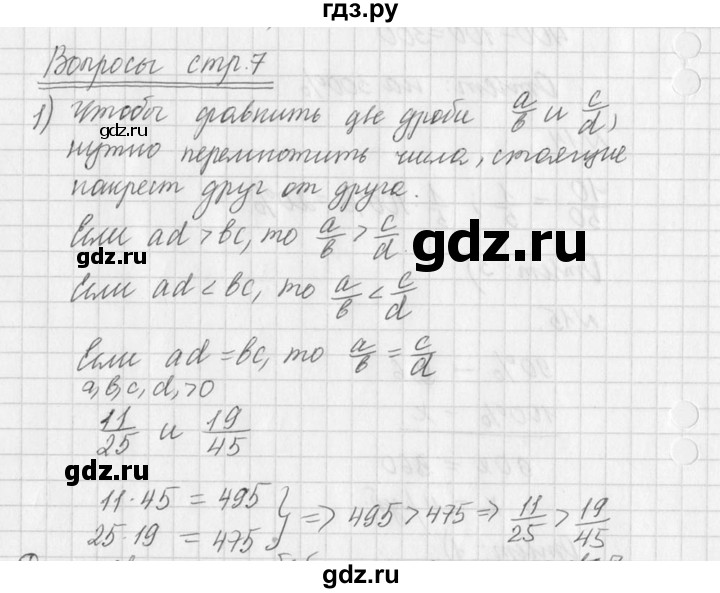 гдз.ру
Вопросы стр.7
1) Чтобы сравнить две дроби a/в и c/d,
gdz.ru
нужно перемножить числа, стоящие
накрест друг от друга.
Если ad > вc, то a/в > c/d
gdz.ru
gdz.ru
Если ad < вc, то a/в < c/d
Если ad = вc, то a/в = c/d
a, в, c, d, >0
11/25 и 19/45
gdz.ru
11·45 = 495
25·19 = 475 } => 495 > 475 => 11/25 > 19/45
gdz.ru
gdz.ru